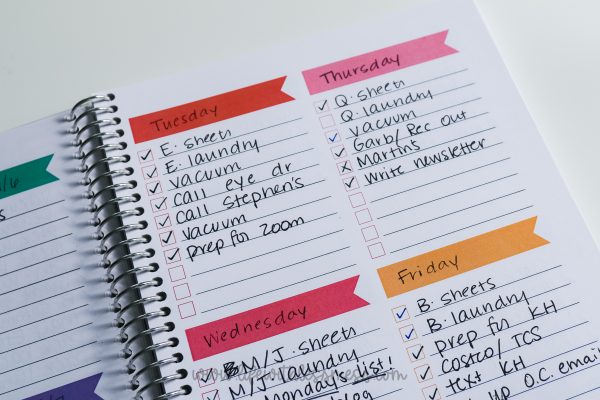 /6
s
Tuesday
E. sheets
E. laundry
vacuum
call eye dr
call Stephen's
vacuum
prep for zoom
Wednesday
M/J. sheets
M/J. laundry
Monday's list!
blog
Thursday
Q. sheets
Q. laundry
vacuum
Garb/Rec out
Martins
write newsletter
Friday
B. sheets
B. laundry
prep for KH
Costco/TCS
text KH
up O.C. email